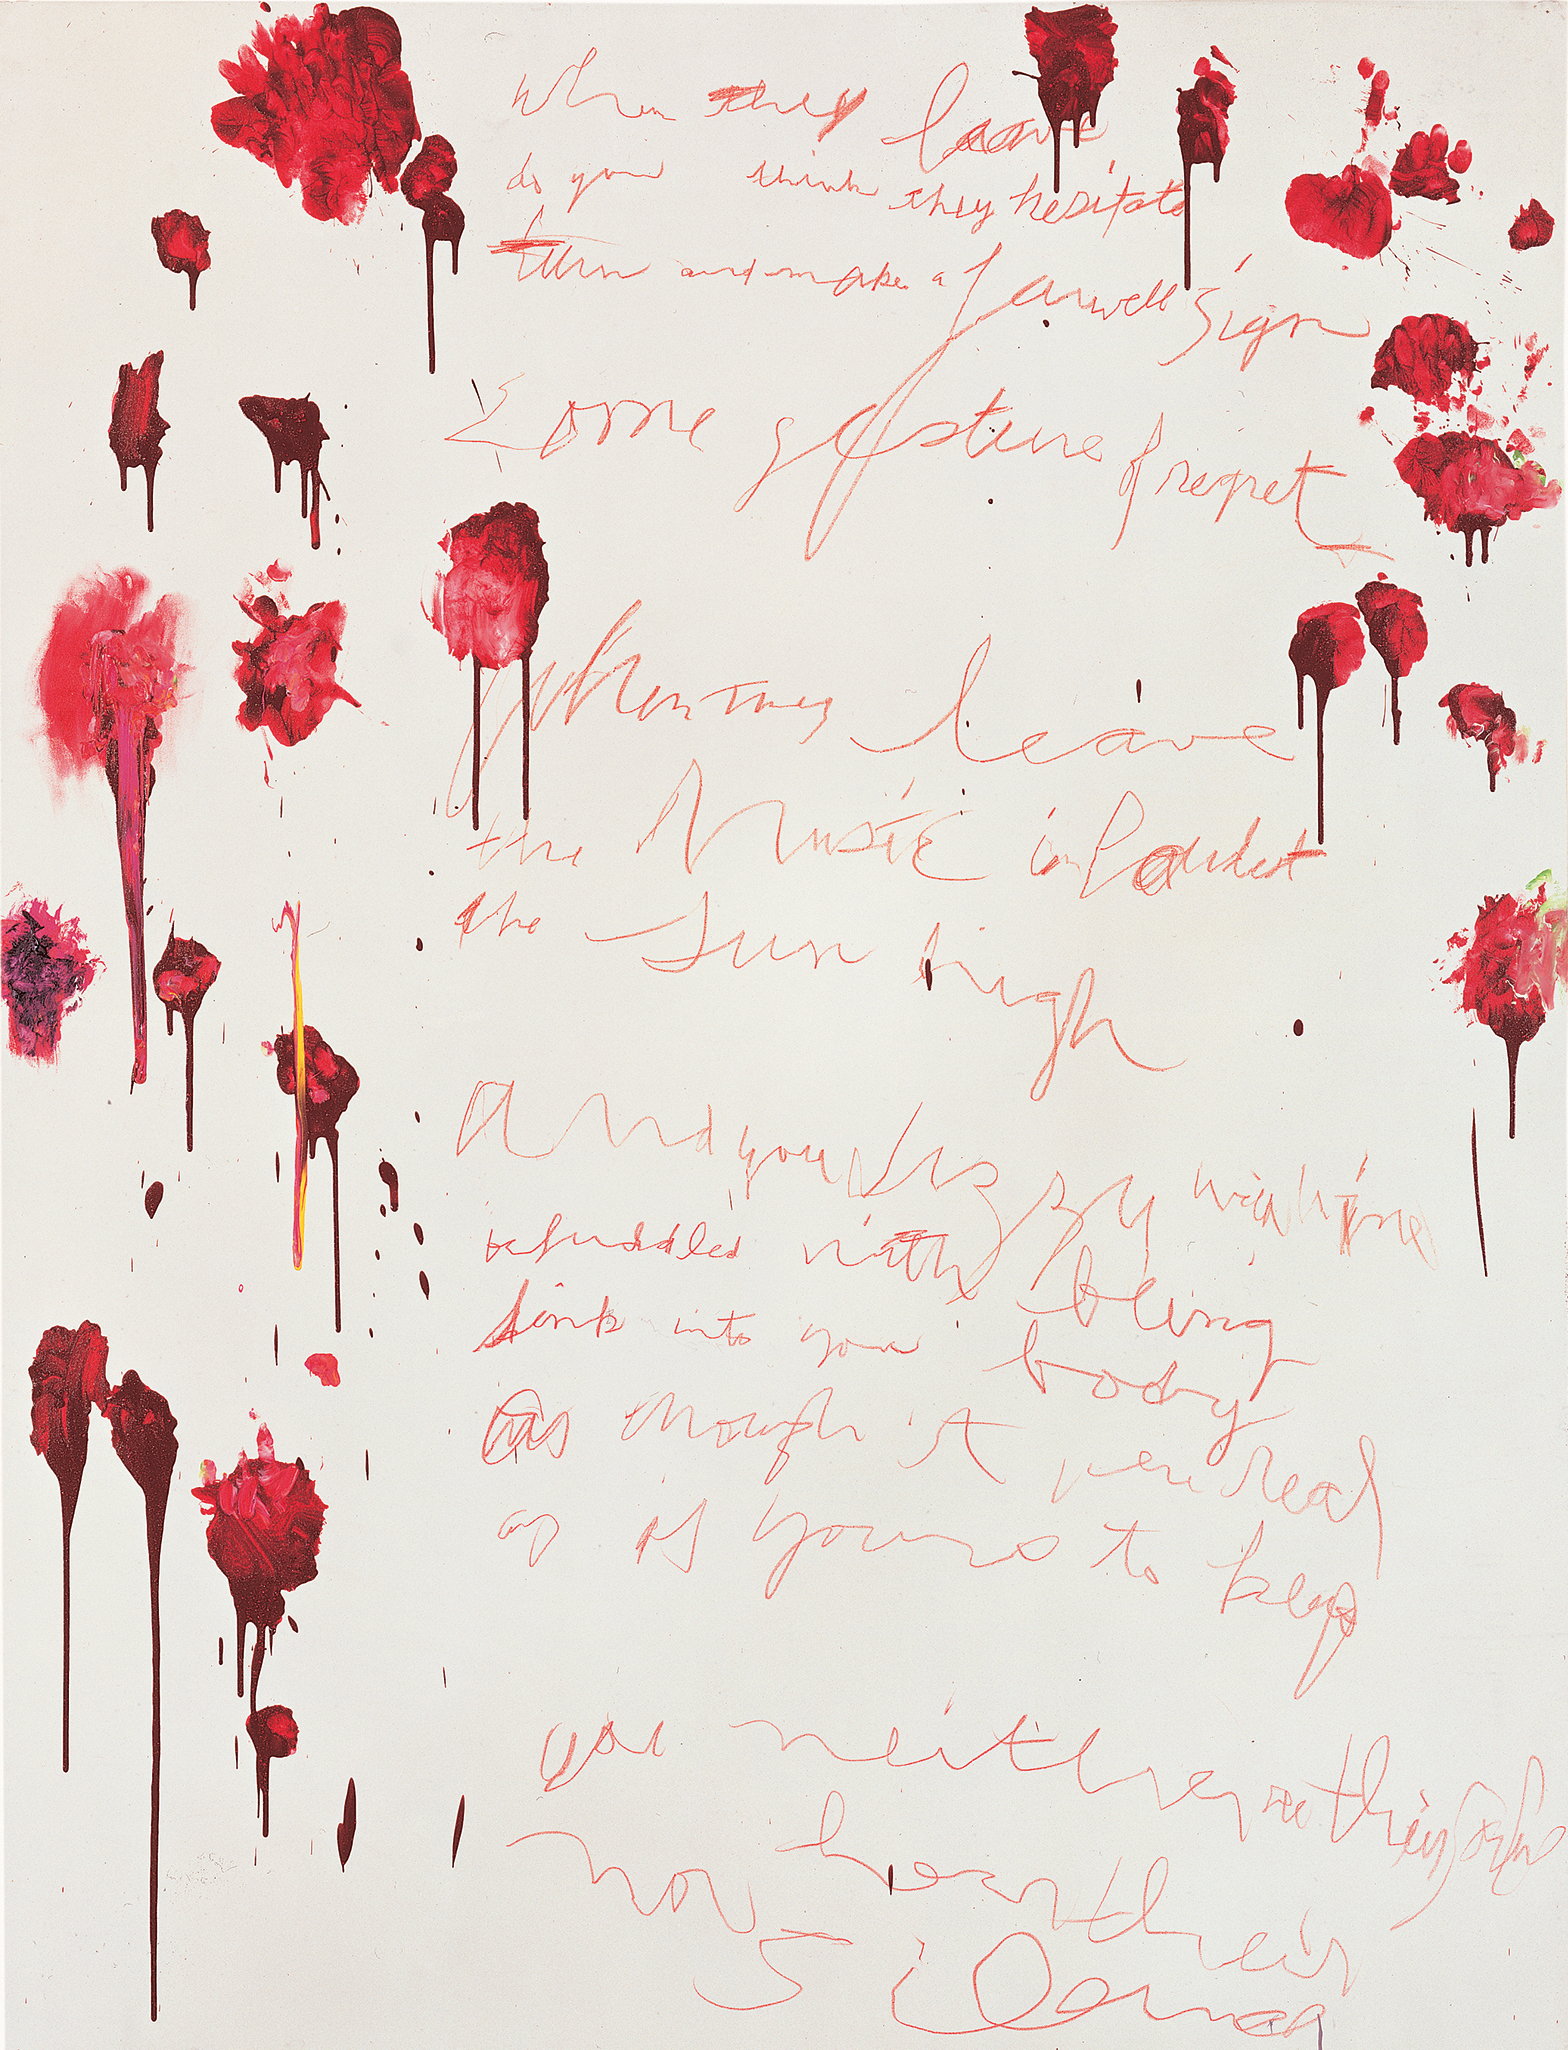 When they leave
do you think they hesitate
turn and make a farwell sign
some gesture of regret
When they leave
the Music is loudest
the sun high
and you dizzy with wine
befuddled with being
sink into your body
as though it were real
as if yours to keep
you neither see their
nor hear their
silence